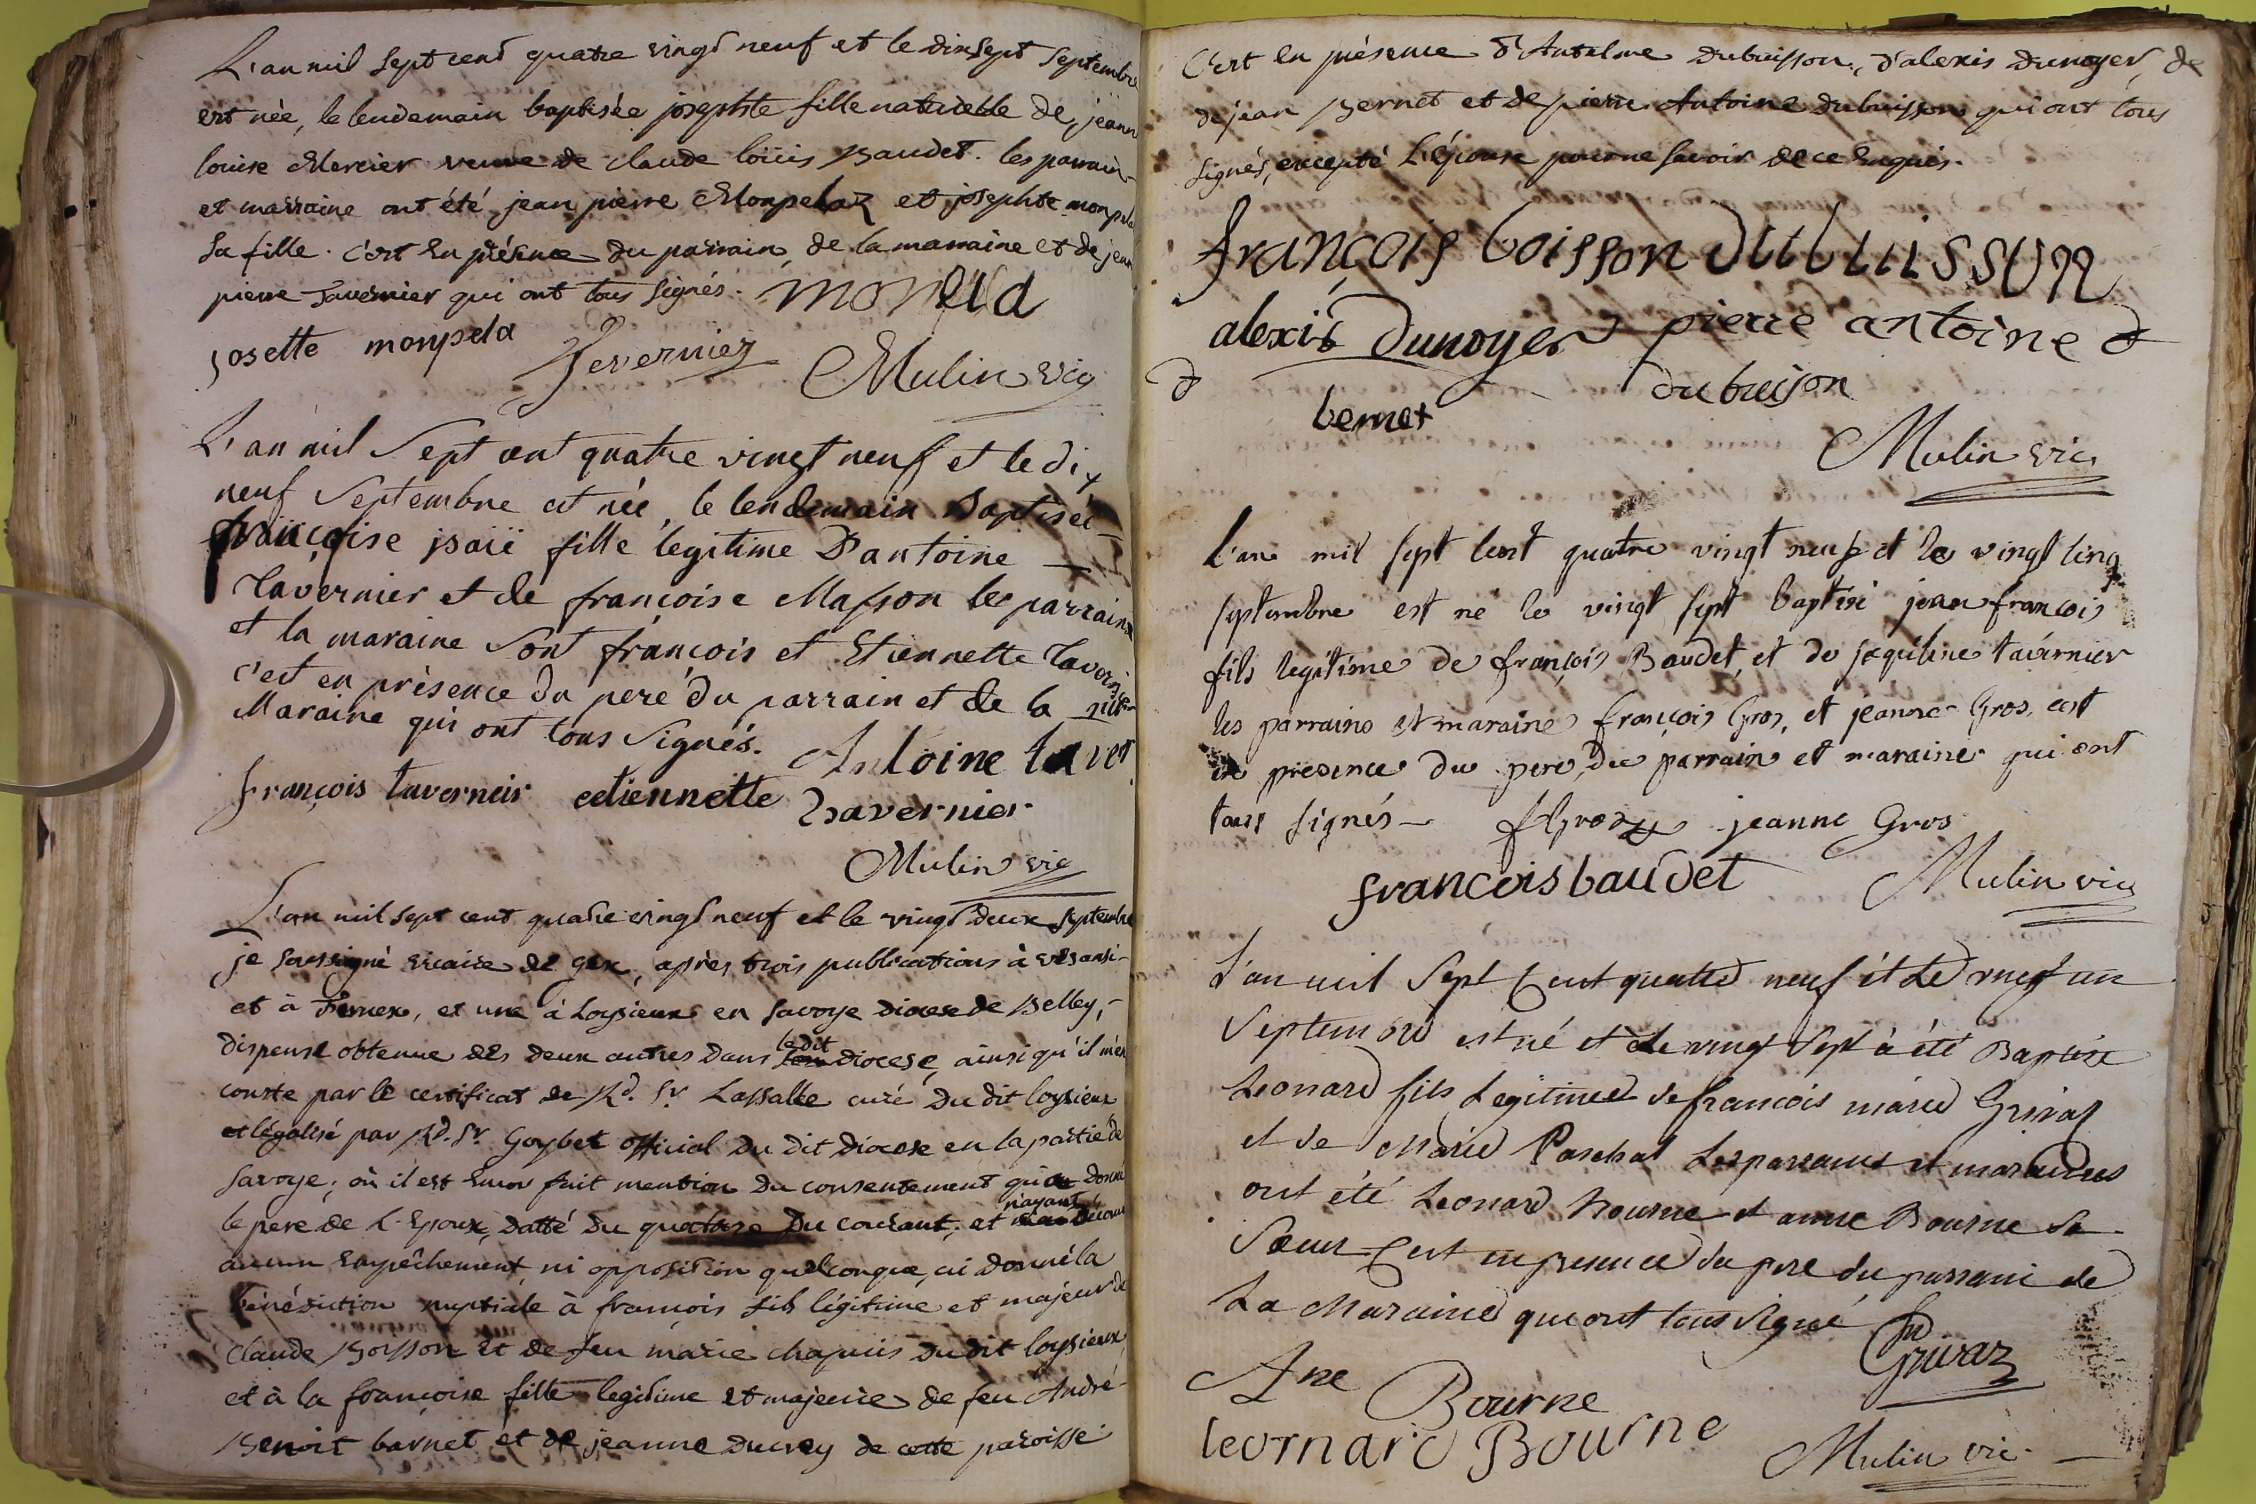 L'an mil sept cent quatre vingt neuf et le dix sept septembre
est née, le lendemain baptisée josephte fille naturelle de jeann
louise Mercier veuve de claude loüis Baudet. les parrain
et marraine ont été jean pierre Monpelaz et josephte monpela
sa fille. c'est en présence du parrain, de la marraine et de jean
pierre Tavernier qui ont tous signés. monpela
josette monpela Tevernier Mulin vic
L'an mil Sept cent quatre vingt neuf et le dix
neuf Septembre est née, le lendemain Baptisée
françoise jsaïe fille legitime D'antoine
Tavernier et de françoise Masson les parrain
et la maraine sont françois et Etiennette Tavernier
c'est en présence du pere du parrain et de la
Maraine qui ont tous signés. Antoine taver
françois taverneir etiennette Thavernier
Mulin vic
L'an mil sept cent quatre vingt neuf et le vingt deux septembre
je soussigné vicaire de gex, après trois publications à vesansi
et à Fernex, et une à Loysieux en Savoye diocese de Belley,
dispense obtenue des deux autres dans ledit diocese, ainsi qu'il m'en
conste par le certificat de Rd. Sr. Lassalle curé du dit loysieux
et légalisé par Rd. Sr. Goybet official du dit diocese en la partie de
Savoye; où il est fait mention du consentement qu'a donné
le pere de L'Epoux, datté du quatorze du courant; et n'ayant découvert
aucun empêchement, ni opposition quelconque, ai donné la
bénédiction nuptiale à françois fils légitime et majeur de
claude Boisson et de feu marie chapuis du dit loysieux,
et à la françoise fille legitime et majeure de feu André
Benoit barnet et de jeanne ducrey de cette paroisse.
C'est en présence d'Antelme dubuisson, d'alexis dunoyer, de
de jean Bernet et de pierre Antoine dubuisson qui ont tous
signés, excepté L'épouse pour ne savoir de ce enquis.
françois boisson dubuisson
alexis Dunoyer pierre antoine d
d dubuison
bernet
Mulin vic
L'an mil sept cent quatre vingt neuf et le vingt cinq
septembre est né le vingt sept baptisé jean françois
fils legitime de françois Baudet, et de jaquéline tavérnier
les parrains et maraine françois Gros, et jeanne Gros, est
en presence du pere, du parrain et maraine qui ont
tous signés fGros jeanne Gros
francois baudet Mulin vic
L'an mil Sept Cent quatre neuf et Le vingt un
Septembre est né et Le vingt Sept à été Baptise
Leonard fils Legitime de francois marie Grivaz
et de Marie Paschal Les parrains et maraines
ont été Leonard Bourne et anne Bourne sa
Sœur C'est en presence du pere du parrain de
La Maraine qui ont tous signé fr
Grivaz
Ane Bourne
leornard Bourne Mulin vic